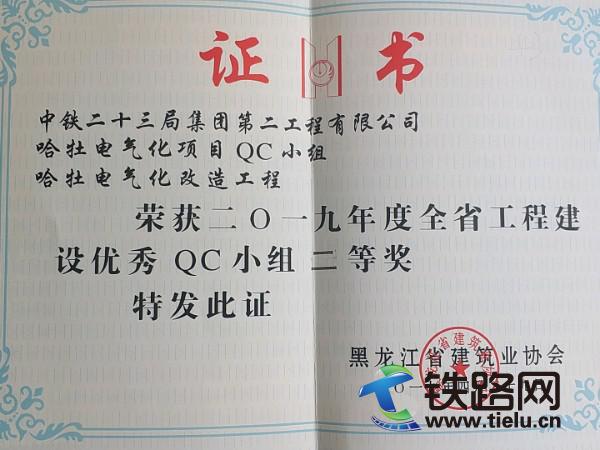 证书
中铁二十三局集团第二工程有限公司
哈牡电气化项目QC小组
哈牡电气化改造工程
荣获二〇一九年度全省工程建
设优秀QC小组 二等奖
特发此证
黑龙江省建筑业协会
铁路网
www.tielu.cn